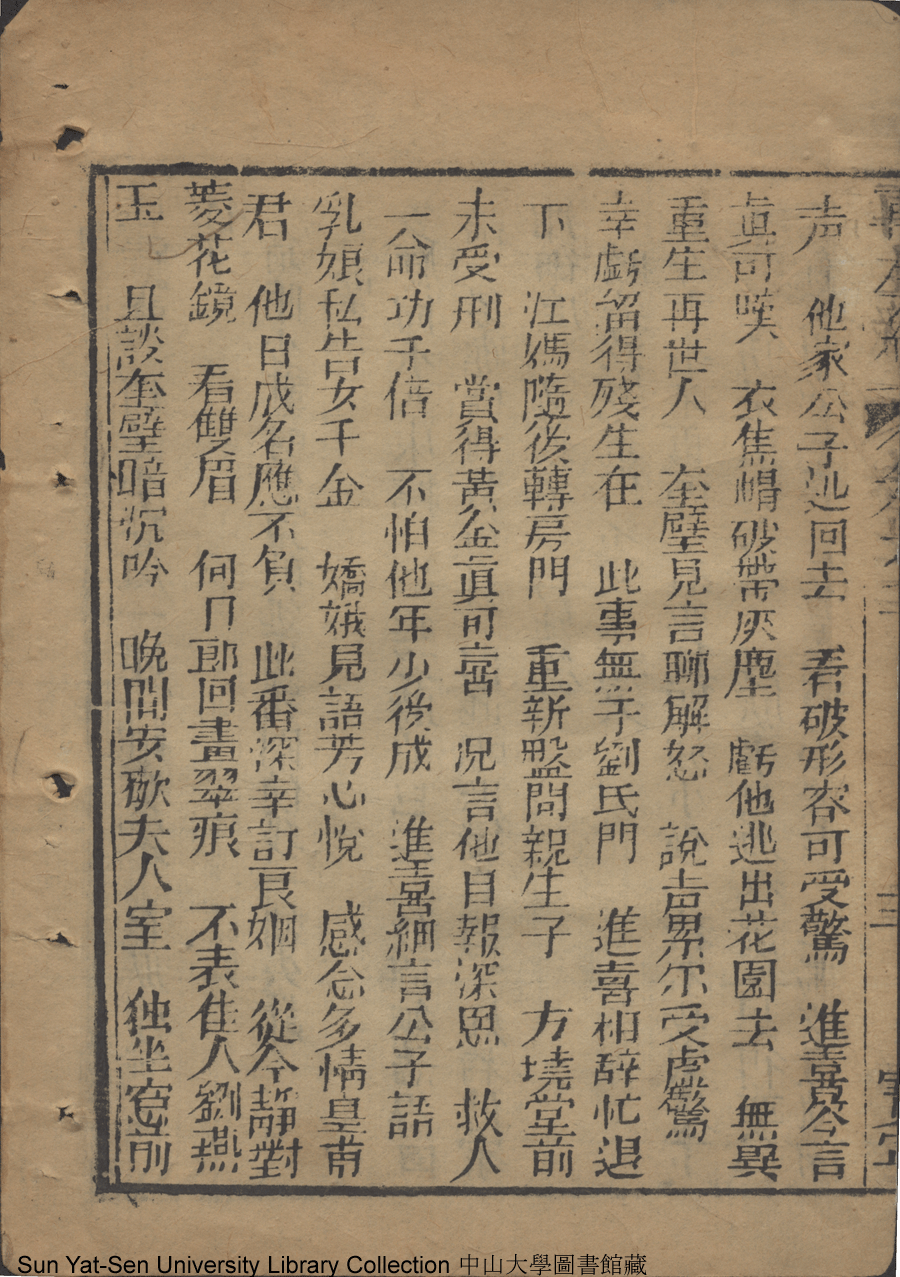 声 他家公子逃回去 看破形容可受驚 進喜今言
真可嘆 衣焦帽破帶灰塵 虧他逃出花園去 無異
重生再世人 奎璧見言聊解怒 說声累尔受虛驚
幸虧留得殘生在 此事無干劉氏門 進喜相辞忙退
下 江媽隨後轉房門 重新盤問親生子 方埦堂前
未受刑 賞得黃金真可喜 况言他目報深恩 救人
一命功千倍 不怕他年少後成 進喜細言公子語
乳娘私告女千金 嬌娥見語芳心悅 感念多情皇甫
君 他日成名應不負 此番深幸訂良姻 從今靜對
菱花鏡 看雙眉 何日郎回畫翠痕 不表隹人劉燕
玉 且談奎璧暗沉吟 晚間安歇夫人室 独坐窓前
三
Sun Yat-Sen University Library Collection 中山大學圖書館藏